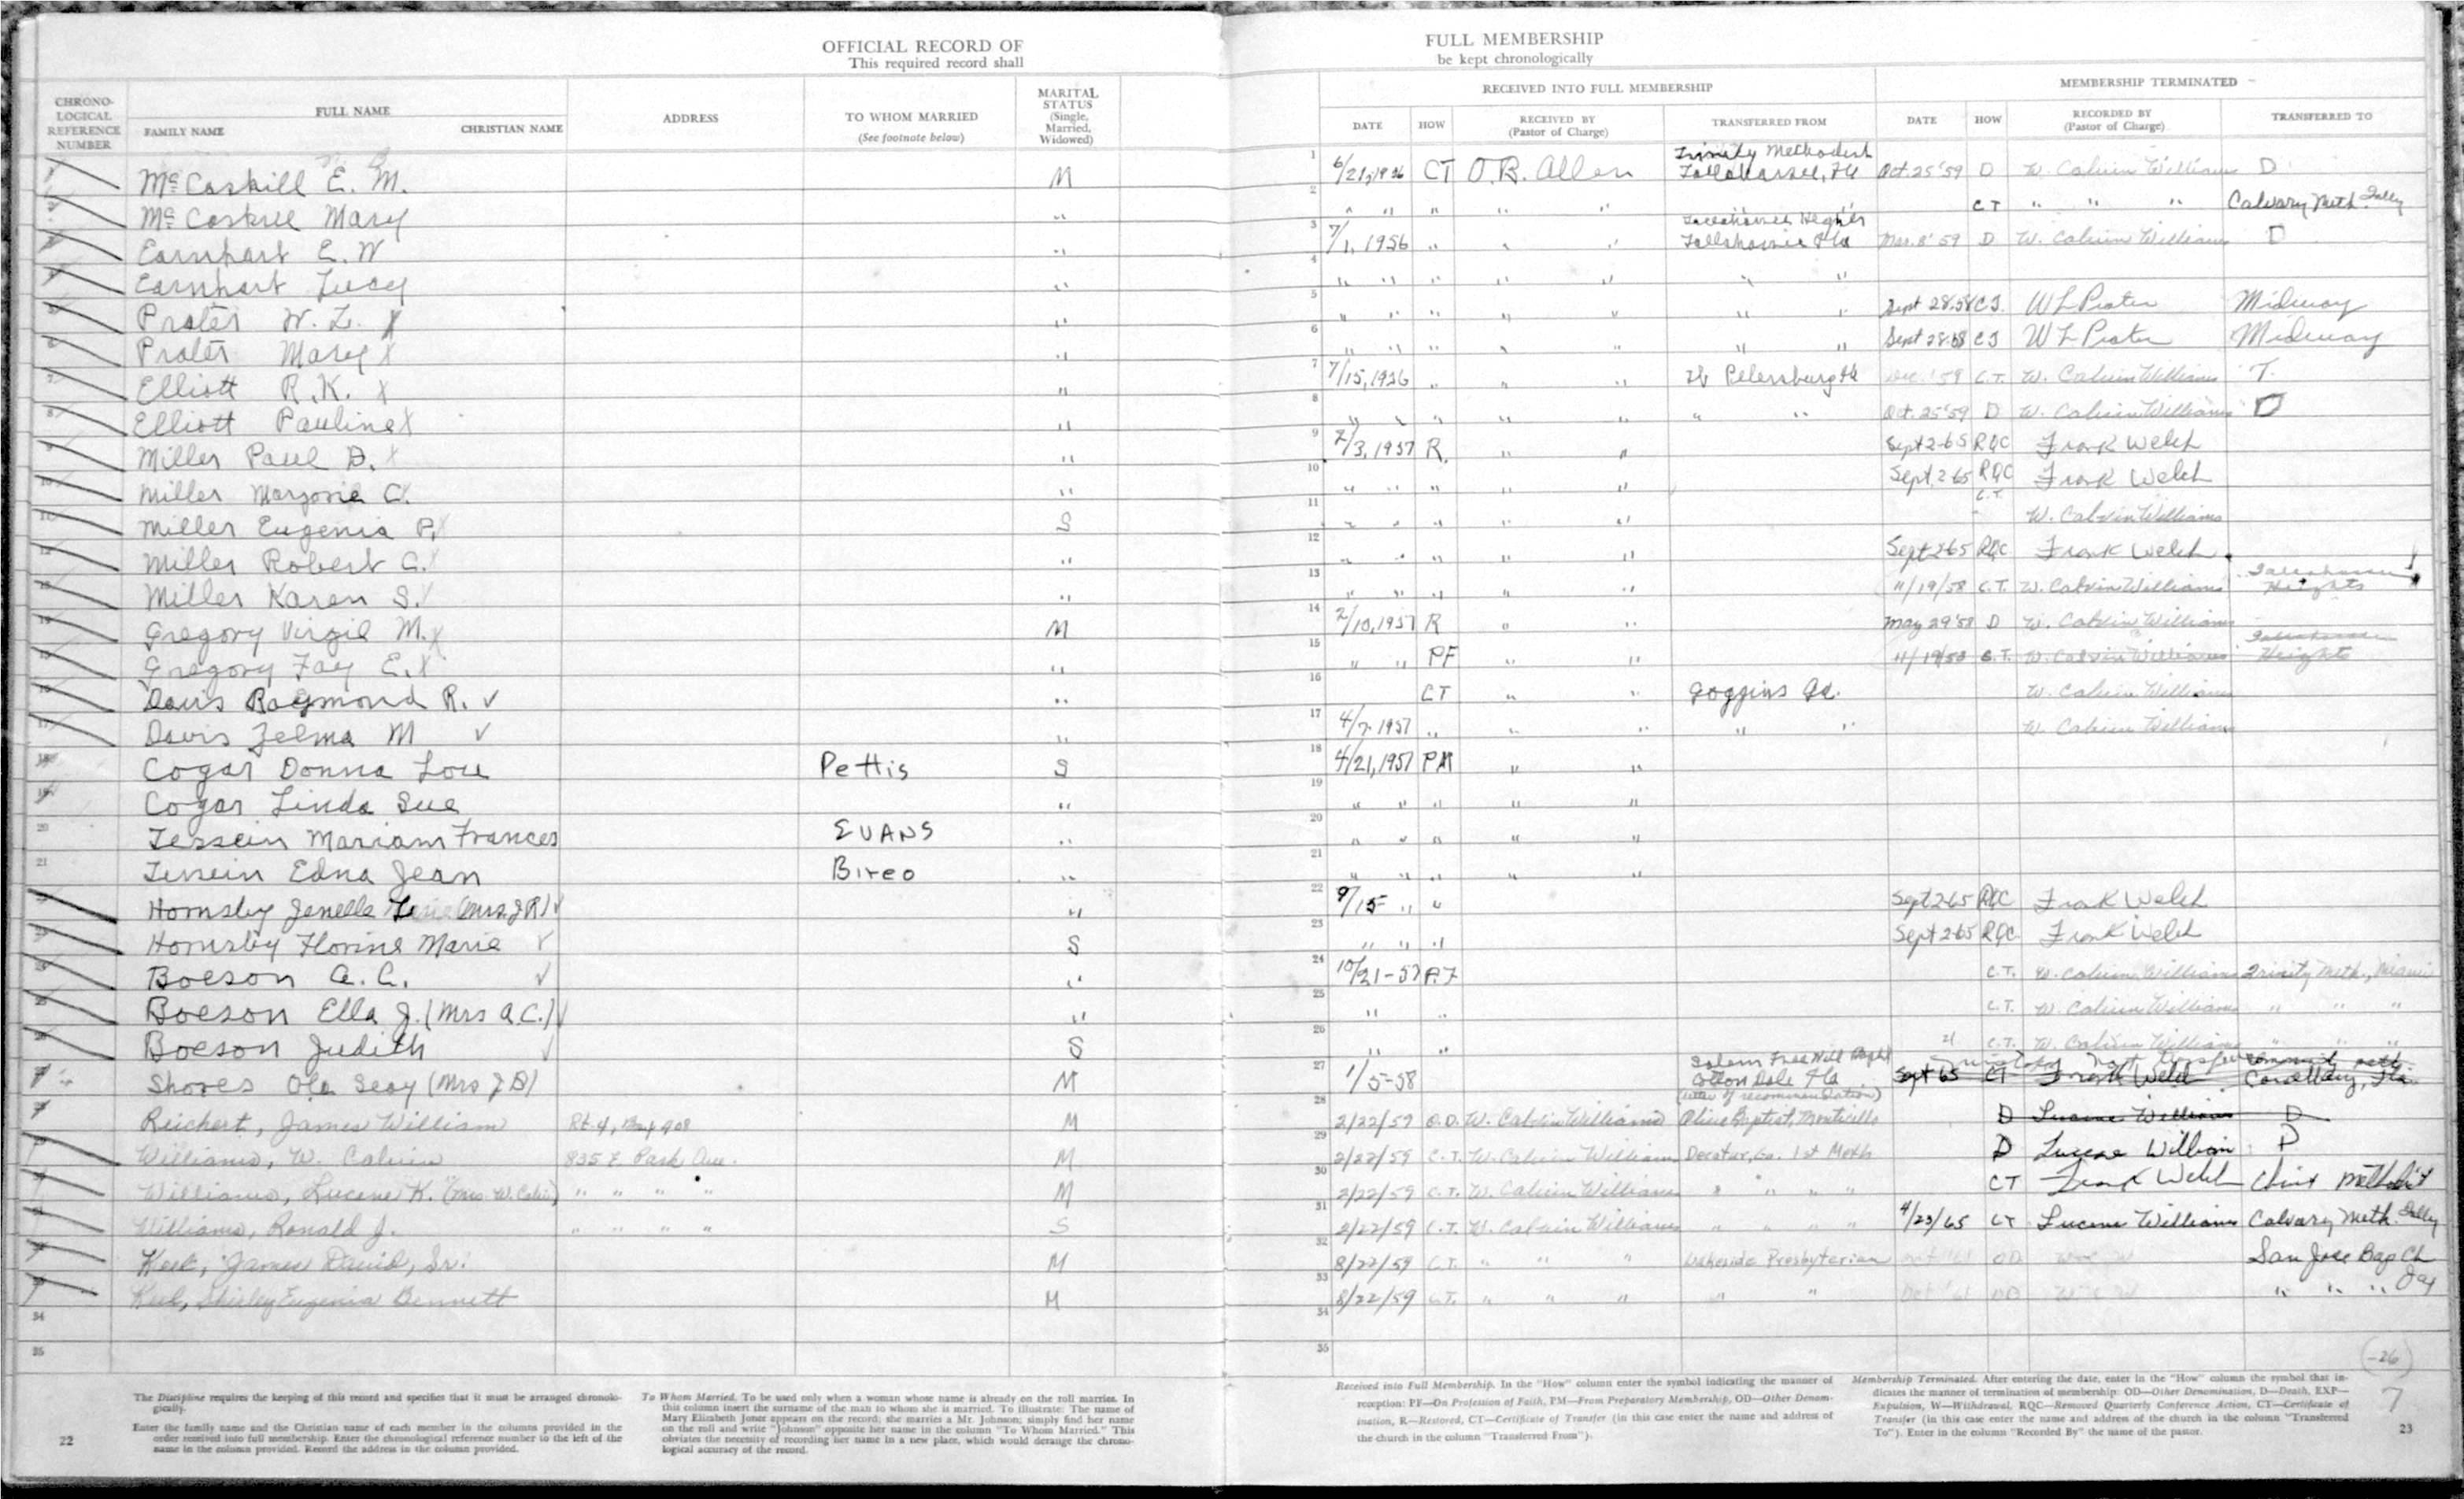 OFFICIAL RECORD OF
This required record shall
CHRONO-
LOGICAL
REFERENCE
NUMBER
FULL NAME
FAMILY NAME CHRISTIAN NAME
ADDRESS
TO WHOM MARRIED
(See footnote below)
MARITAL
STATUS
(Single,
Married,
Widowed)
McCaskill E. M. M
McCaskill Mary "
Earnhart E. W "
Earnhart Lucy "
Prater W. L. X "
Prater Mary X "
Elliott R.K. X "
Elliott Pauline X "
Miller Paul D. X "
Miller Marjorie C. "
Miller Eugenia P. S
Miller Robert G. "
Miller Karen S. "
Gregory Virgil M. X M
Gregory Fay E. X "
Davis Raymond R. ✓ "
Davis Zelma M ✓ "
Cogar Donna Lou Pettis S
Cogar Linda Sue "
20 Tessein Mariam Frances EVANS "
21 Tessein Edna Jean Bireo "
Hornsby Jenelle (Mrs J R) ✓ "
Hornsby Florine Marie ✓ S
Boeson A. C. ✓ "
Boeson Ella J. (Mrs A.C.) ✓ "
Boeson Judith ✓ S
Shores Ola Seay (Mrs J B) M
Reichert, James William Rt. 4, Box 908 M
Williams, W. Calvin 835 E. Park Ave. M
Williams, Lucene K. (Mrs W. Calvin) " " " " M
Williams, Ronald J. " " " " S
James David, Sr. M
Shirley Eugenia Bennett M
34
35
The Discipline requires the keeping of this record and specifies that it must be arranged chronolo-
gically.
Enter the family name and the Christian name of each member in the columns provided in the
order received into full membership. Enter the chronological reference number to the left of the
name in the column provided. Record the address in the column provided.
To Whom Married. To be used only when a woman whose name is already on the roll marries. In
this column insert the surname of the man to whom she is married. To illustrate: The name of
Mary Elizabeth Jones appears on the record; she marries a Mr. Johnson; simply find her name
on the roll and write "Johnson" opposite her name in the column "To Whom Married." This
obviates the necessity of recording her name in a new place, which would derange the chrono-
logical accuracy of the record.
22
FULL MEMBERSHIP
be kept chronologically
RECEIVED INTO FULL MEMBERSHIP
MEMBERSHIP TERMINATED
DATE HOW
RECEIVED BY
(Pastor of Charge)
TRANSFERRED FROM
DATE HOW
RECORDED BY
(Pastor of Charge)
TRANSFERRED TO
Trinity Methodist
1 6/21, 1956 CT O. R. Allen Tallahassee, Fla Oct. 25 '59 D W. Calvin Williams D
2 " " " " " " CT " " " Calvary Meth. Tally
Tallahassee Heights
3 7/1, 1956 " " " Tallahassee Fla Mar. 8 '59 D W. Calvin Williams D
4 " " " " " " "
5 " " " " " " " Sept 28.58 C.T. W L Prater Midway
6 " " " " " " " Sept 28.58 C T W L Prater Midway
7 7/15, 1956 " " " St Petersburg Fla Dec. '59 C.T. W. Calvin Williams T.
8 " " " " " " " Oct. 25 '59 D W. Calvin Williams D
9 2/3, 1957 R. " " Sept 2-65 RQC Frank Welch
10 " " " " " Sept. 2 65 RQC Frank Welch
C.T.
11 " " " " " W. Calvin Williams
12 " " " " " Sept 2 65 RQC Frank Welch
13 " " " " " 11/19/58 C.T. W. Calvin Williams Tallahassee Heights
14 2/10, 1957 R " " May 29 '58 D W. Calvin Williams
15 " " PF " " 11/19/58 C.T. W. Calvin Williams Tallahassee Heights
16 CT " " Goggins Ga. W. Calvin Williams
17 4/7 1957 " " " " " W. Calvin Williams
18 4/21, 1957 PM " "
19 " " " " "
20 " " " " "
21 " " " " "
22 9/15 " " Sept 2-65 RQC Frank Welch
23 " " " Sept 2-65 RQC Frank Welch
24 10/21-57 P.F C.T. W. Calvin Williams Trinity Meth., Miami
25 " " C.T. W. Calvin Williams " " "
26 " " C.T. W. Calvin Williams " " "
Salem Free Will Bapt
27 1/5-58 Cotton Dale Fla Sept 65 CT Frank Welch
(letter of recommendation)
28 2/22/59 O.D. W. Calvin Williams Olive Baptist, Monticello D Lucene Williams D
29 2/22/59 C.T. W. Calvin Williams Decatur, Ga. 1st Meth. D Lucene William D
30 2/22/59 C.T. W. Calvin Williams " " " " CT Frank Welch Christ Methodist
31 2/22/59 C.T. W. Calvin Williams " " " " 4/23/65 CT Lucene Williams Calvary Meth. Tally
32 8/22/59 C.T. " " " Lakeside Presbyterian OD San Jose Bap Ch
33 8/22/59 C.T. " " " " " OD " " " Jax
34
35
(-26)
7
Received into Full Membership. In the "How" column enter the symbol indicating the manner of
reception: PF—On Profession of Faith, PM—From Preparatory Membership, OD—Other Denom-
ination, R—Restored, CT—Certificate of Transfer (in this case enter the name and address of
the church in the column "Transferred From").
Membership Terminated. After entering the date, enter in the "How" column the symbol that in-
dicates the manner of termination of membership: OD—Other Denomination, D—Death, EXP—
Expulsion, W—Withdrawal, RQC—Removed Quarterly Conference Action, CT—Certificate of
Transfer (in this case enter the name and address of the church in the column "Transferred
To"). Enter in the column "Recorded By" the name of the pastor.
23